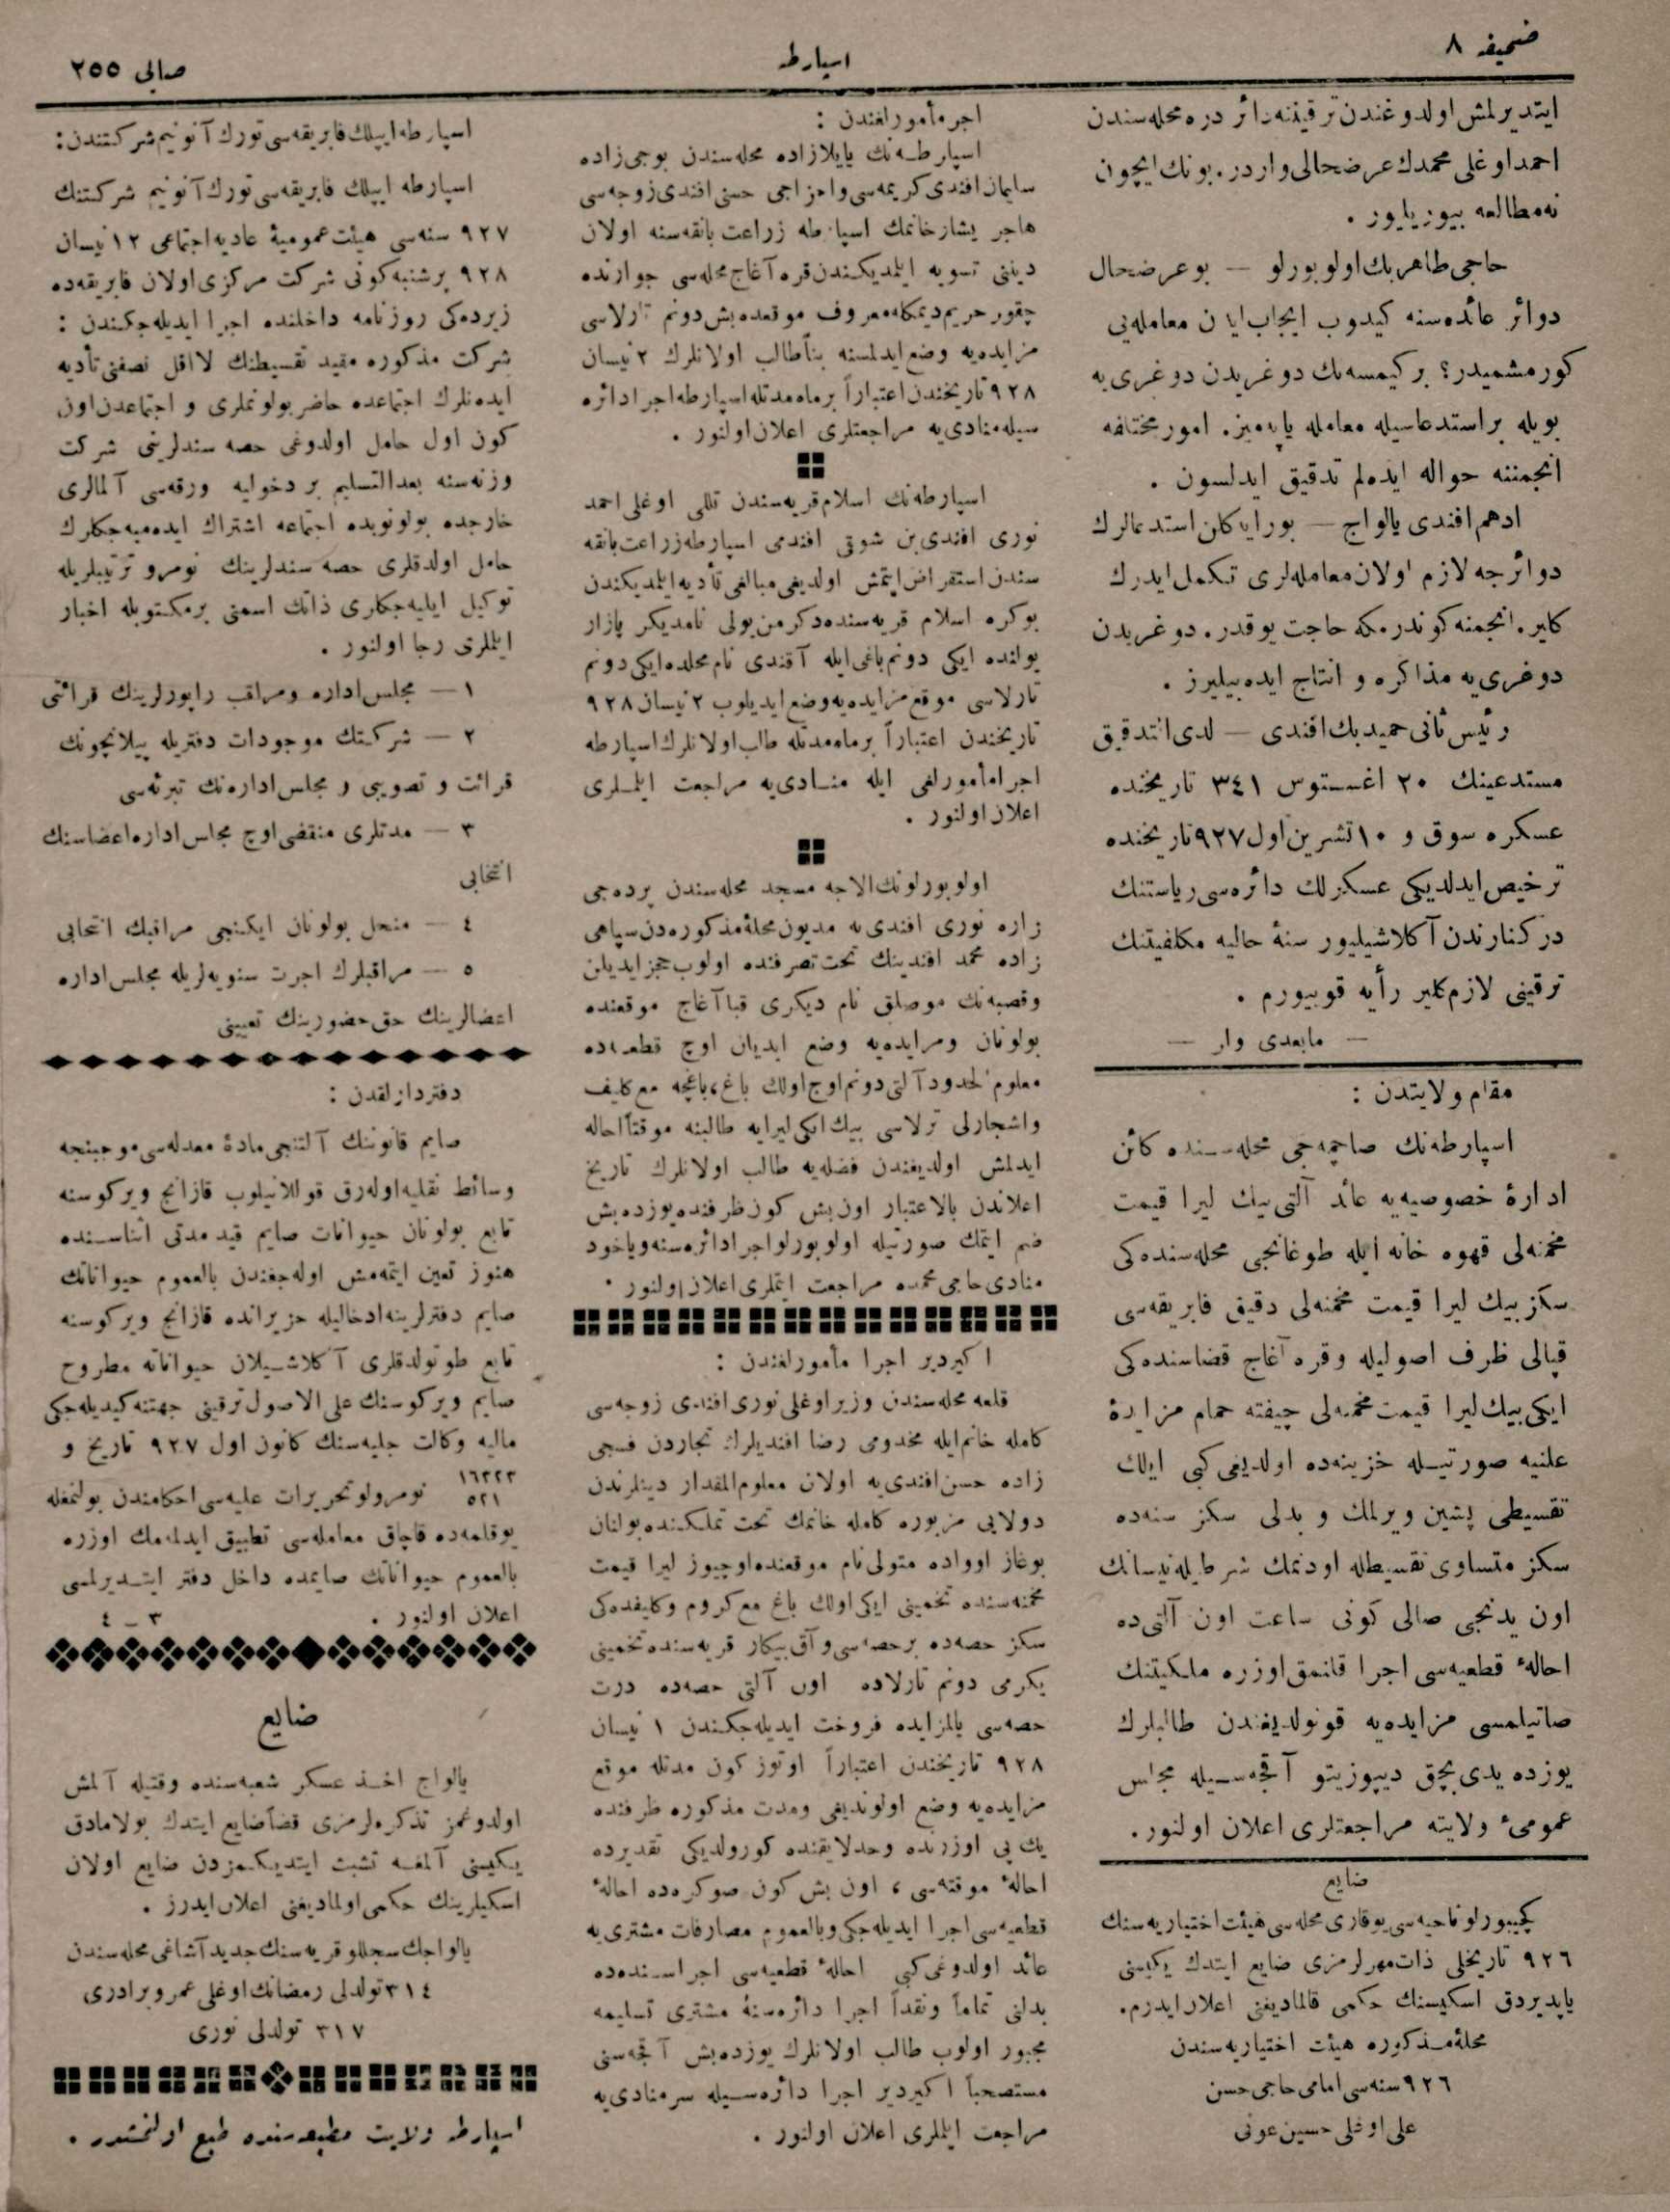 صحیفه ٨
اسپارطه
صالی ٢٥٥
ایتدیرلمش اولدوغندن ترقیننه دائر دره محله‌سندن
احمد اوغلی محمدك عرضحالی واردر. بونك ایچون
نه مطالعه بیوریلیور .
حاجی طاهر بك اولوبورلو — بو عرضحال
دوائر عائده‌سنه کیدوب ایجاب ایدن معامله‌یی
کورمشمیدر؟ بر کیمسه‌نك دوغریدن دوغری‌یه
بویله بر استدعاسیله معامله یاپه‌میز. امور مختلفه
انجمننه حواله ایده‌لم تدقیق ایدلسون .
ادهم افندی یالواج — بورایه کلن استدعالرك
دوائرجه لازم اولان معامله‌لری تکمل ایدرك
کلیر. انجمنه کوندرمکه حاجت یوقدر. دوغریدن
دوغری‌یه مذاکره و انتاج ایده بیلیرز .
رئیس ثانی حمید بك افندی — لدی التدقیق
مستدعینك ٢٠ اغستوس ٣٤١ تاریخنده
عسکره سوق و ١٠ تشرین اول ٩٢٧ تاریخنده
ترخیص ایدلدیکی عسکرلك دائره‌سی ریاستنك
درکنارندن آکلاشیلیور سنهٔ حالیه مکلفیتنك
ترقینی لازم کلیر رأیه قویبورم .
— مابعدی وار —
مقام ولایتدن :
اسپارطه‌نك صاچمه‌جی محله‌سنده کائن
ادارهٔ خصوصیه‌یه عائد آلتی بیك لیرا قیمت
مخمنه‌لی قهوه خانه ایله طوغانجی محله‌سنده‌کی
سکز بیك لیرا قیمت مخمنه‌لی دقیق فابریقه‌سی
قپالی ظرف اصولیله وقره آغاج قضاسنده‌کی
ایکی بیك لیرا قیمت مخمنه‌لی چیفته حمام مزایدهٔ
علنیه صورتیله خزینه‌ده اولدیغی کبی ایلك
تقسیطی پشین ویرلمك و بدلی سکز سنه‌ده
سکز متساوی تقسیطله اودنمك شرطیله نیسانك
اون یدنجی صالی کونی ساعت اون آلتی‌ده
احالهٔ قطعیه‌سی اجرا قلنمق اوزره ملکیتنك
صاتیلمسی مزایده‌یه قونولدیغندن طالبلرك
یوزده یدی بچق دیپوزیتو آقچه‌سیله مجلس
عمومیٔ ولایته مراجعتلری اعلان اولنور.
ضایع
کچیبورلو ناحیه‌سی یوقاری محله‌سی هیئت اختیاریه‌سنك
٩٢٦ تاریخلی ذات مهرلرمزی ضایع ایتدك یکیسنی
یاپدیردق اسکیسنك حکمی قالمادیغنی اعلان ایدرم.
محلهٔ مذکوره هیئت اختیاریه‌سندن
٩٢٦ سنه‌سی امامی حاجی حسن
علی اوغلی حسین عونی
اجرمأمورلغندن :
اسپارطه‌نك یایلازاده محله‌سندن بوجی زاده
سلیمان افندی کریمه‌سی و احزاجی حسنی افندی زوجه‌سی
هاجر یشار خانمك اسپارطه زراعت بانقه‌سنه اولان
دیننی تسویه ایلمدیکندن قره آغاج محله‌سی جوارنده
چقور حریم دیمکله معروف موقعده بش دونم تارلاسی
مزایده‌یه وضع ایدلمسنه بناً طالب اولانلرك ٢ نیسان
٩٢٨ تاریخندن اعتباراً بر ماه مدتله اسپارطه اجرا دائره
سیله منادی‌یه مراجعتلری اعلان اولنور .
اسپارطه‌نك اسلام قریه‌سندن تللی اوغلی احمد
نوری افندی بن شوقی افندی اسپارطه زراعت بانقه
سندن استقراض ایتمش اولدیغی مبالغی تأدیه ایلمدیکندن
بوکره اسلام قریه‌سنده دکرمن یولی نامدیکر پازار
یولنده ایکی دونم باغی ایله آقندی نام محلده ایکی دونم
تارلاسی موقع مزایده‌یه وضع ایدیلوب ٢ نیسان ٩٢٨
تاریخندن اعتباراً بر ماه مدتله طالب اولانلرك اسپارطه
اجرا مأمورلغی ایله منادی‌یه مراجعت ایلملری
اعلان اولنور .
اولوبورلونك الاجه مسجد محله‌سندن پرده‌جی
زاده نوری افندی‌یه مدیون محلهٔ مذکوره‌دن سپاهی
زاده محمد افندینك تحت تصرفنده اولوب حجز ایدیلن
وقصبه‌نك موصلق نام دیکری قبا آغاج موقعنده
بولونان ومزایده‌یه وضع ایدیلن اوچ قطعه‌ده
معلوم الحدود آلتی دونم اوچ اولك باغ، باغچه مع کلیف
واشجارلی ترلاسی بیك ایکی لیرایه طالبنه موقتاً احاله
ایدلمش اولدیغندن فضله‌یه طالب اولانلرك تاریخ
اعلاندن بالاعتبار اون بش کون ظرفنده یوزده بش
ضم ایتمك صورتیله اولوبورلو اجرا دائره‌سنه ویاخود
منادی حاجی محمده مراجعت ایتملری اعلان اولنور .
اکیردیر اجرا مأمورلغندن :
قلعه محله‌سندن وزیر اوغلی نوری افندی زوجه‌سی
کامله خانم ایله مخدومی رضا افندیلرك تجاردن فسجی
زاده حسن افندی‌یه اولان معلوم المقدار دینلرندن
دولایی مزبوره کامله خانمك تحت تملکنده بولنان
بوغاز اوواده متولی نام موقعنده اوچیوز لیرا قیمت
مخمنه‌سنده تخمینی ایکی اولك باغ مع کروم وکلیفده‌کی
سکز حصه‌ده بر حصه‌سی و آق بیکار قریه‌سنده تخمینی
یکرمی دونم تارلاده اون آلتی حصه‌ده درت
حصه‌سی بالمزایده فروخت ایدیله‌جکندن ١ نیسان
٩٢٨ تاریخندن اعتباراً اوتوز کون مدتله موقع
مزایده‌یه وضع اولوندیغی ومدت مذکوره ظرفنده
یك پی اوزرنده وحدلایقنده کورولدیکی تقدیرده
احالهٔ موقته‌سی ، اون بش کون صوکره‌ده احالهٔ
قطعیه‌سی اجرا ایدیله‌جکی وبالعموم مصارفات مشتری‌یه
عائد اولدوغی کبی احالهٔ قطعیه‌سی اجراسنده‌ده
بدلنی تماماً ونقداً اجرا دائره‌سنهٔ مشتری تسلیمه
مجبور اولوب طالب اولانلرك یوزده بش آقچه‌سنی
مستصحباً اکیردیر اجرا دائره‌سیله سرمنادی‌یه
مراجعت ایلملری اعلان اولنور .
اسپارطه ایپلك فابریقه‌سی تورك آنونیم شرکتندن:
اسپارطه ایپلك فابریقه‌سی تورك آنونیم شرکتنك
٩٢٧ سنه‌سی هیئت عمومیهٔ عادیه اجتماعی ١٢ نیسان
٩٢٨ پرشنبه کونی شرکت مرکزی اولان فابریقه‌ده
زیرده‌کی روزنامه داخلنده اجرا ایدیله‌جکندن :
شرکت مذکوره مقید تقسیطنك لااقل نصفنی تأدیه
ایده‌نلرك اجتماعده حاضر بولونملری و اجتماعدن اون
کون اول حامل اولدوغی حصه سندلرینی شرکت
وزنه‌سنه بعدالتسلیم بر دخولیه ورقه‌سی آلمالری
خارجده بولونوبده اجتماعه اشتراك ایده‌میه‌جکلرك
حامل اولدقلری حصه سندلرینك نومرو ترتیبلریله
توکیل ایلیه‌جکلری ذاتك اسمنی بر مکتوبله اخبار
ایلملری رجا اولنور .
١ — مجلس اداره ومراقب راپورلرینك قرائتی
٢ — شرکتك موجودات دفتریله پیلانچونك
قرائت و تصویبی و مجلس اداره‌نك تبرئه‌سی
٣ — مدتلری منقضی اوچ مجلس اداره اعضاسنك
انتخابی
٤ — منحل بولونان ایکنجی مراقبك انتخابی
٥ — مراقبلرك اجرت سنویه‌لریله مجلس اداره
اعضالرینك حق حضورینك تعیینی
دفتردارلقدن :
صایم قانوننك آلتنجی مادهٔ معدله‌سی موجبنجه
وسائط نقلیه اوله‌رق قوللانیلوب قازانج ویرکوسنه
تابع بولونان حیوانات صایم قید مدتی اثناسنده
هنوز تعین ایتمه‌مش اوله‌جغندن بالعموم حیواناتك
صایم دفترلرینه ادخالیله حزیرانده قازانج ویرکوسنه
تابع طوتولدقلری آکلاشیلان حیواناته مطروح
صایم ویرکوسنك علی الاصول ترقینی جهتنه کیدیله‌جکی
مالیه وکالت جلیه‌سنك کانون اول ٩٢٧ تاریخ و
١٦٢٢٣
٥٢١ نومرولو تحریرات علیه‌سی احکامندن بولنمغله
یوقلمه‌ده قاچاق معامله‌سی تطبیق ایدلمه‌مك اوزره
بالعموم حیواناتك صایمده داخل دفتر ایتدیرلمسی
اعلان اولنور . ٣ — ٤
ضایع
یالواج اخذ عسکر شعبه‌سنده وقتیله آلمش
اولدوغمز تذکره‌لرمزی قضاًضایع ایتدك بولامادق
یکیسنی آلمغه تشبث ایتدیکمزدن ضایع اولان
اسکیلرینك حکمی اولمادیغنی اعلان ایدرز .
یالواجك سجللو قریه‌سنك جدید آشاغی محله‌سندن
٣١٤ تولدلی رمضانك اوغلی عمر وبرادری
٣١٧ تولدلی نوری
اسپارطه ولایت مطبعه‌سنده طبع اولنمشدر .